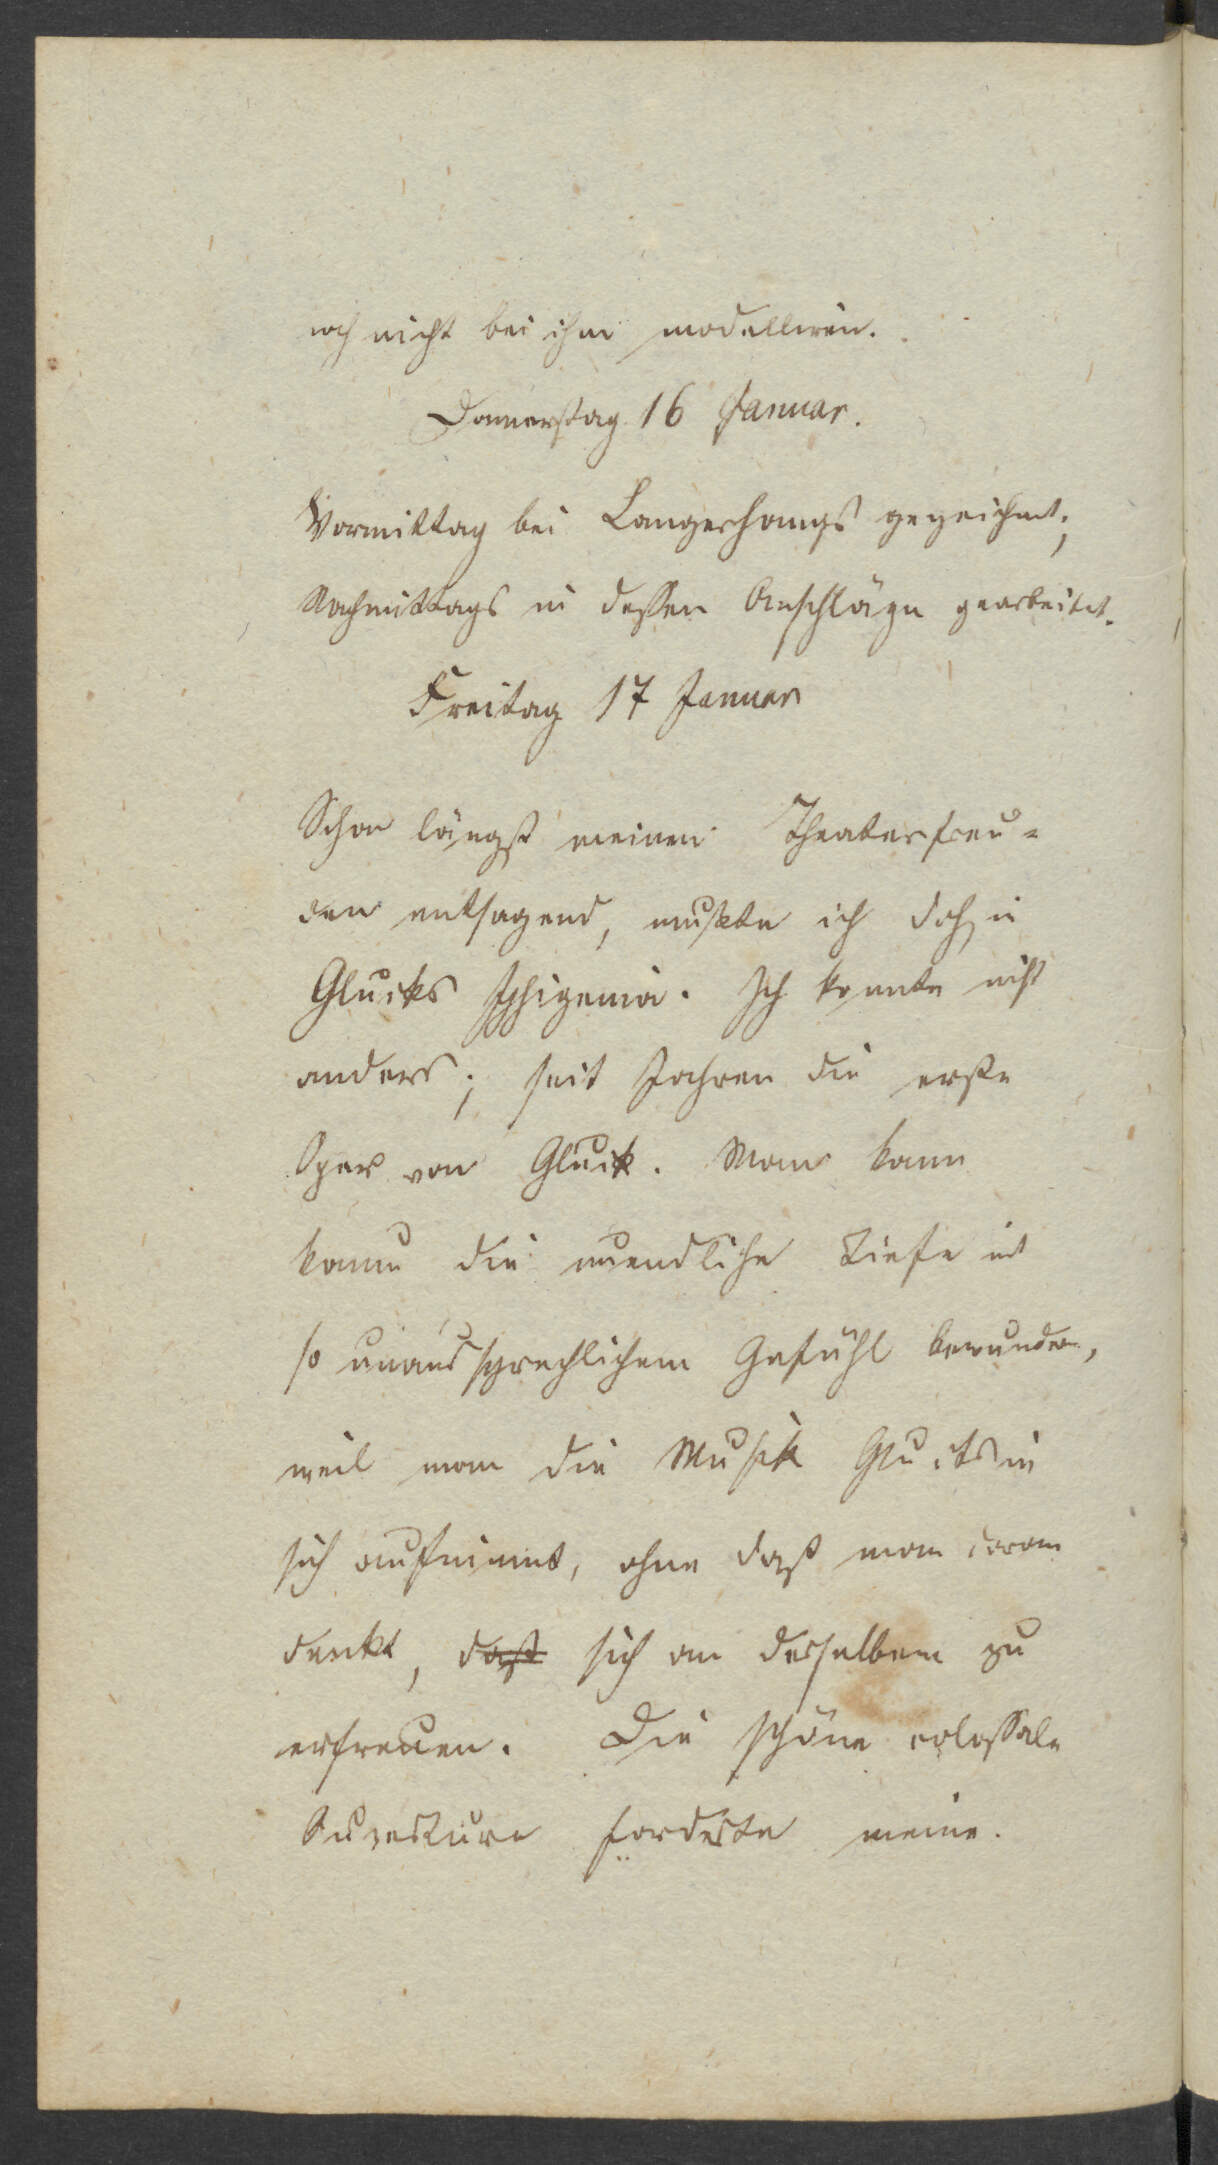 noch nicht bei ihm modelliren.
Donnerstag 16 Januar.
Vormittag bei Langerhangs gezeichnet;
Nachmittags in dessen Anschläge gearbeitet.
Freitag 17 Januar
Schon längst meinen Theaterfreu-
den entsagend, mußte ich doch in
Glucks Iphigenia. Ich konnte nicht
anders; seit Jahren die erste
Oper von Gluck. Man kann
kaum die unendliche Tiefe mit
so unaussprechlichem Gefühl bewundern,
weil man die Musik Glucks in
sich aufnimmt, ohne daß man daran
denkt, daß sich an derselben zu
erfreuen. Die schöne colossale
Ouverture forderte meine